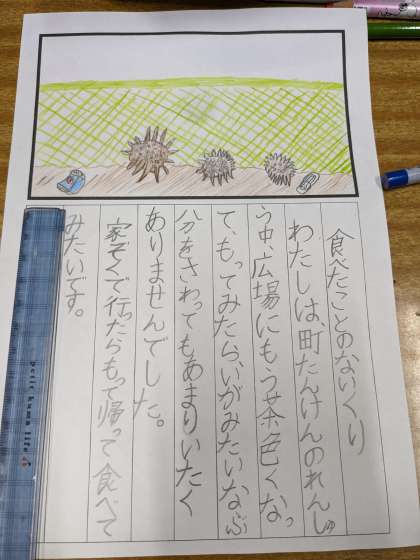 食べたことのないくり
わたしは、町たんけんのれんしゅ
う中、広場にもう茶色くなっ
て、もってみたら、いがみたいなぶ
分をさわってもあまりいたく
ありませんでした。
家ぞくで行ったらもって帰って食べて
みたいです。
petit kuma life